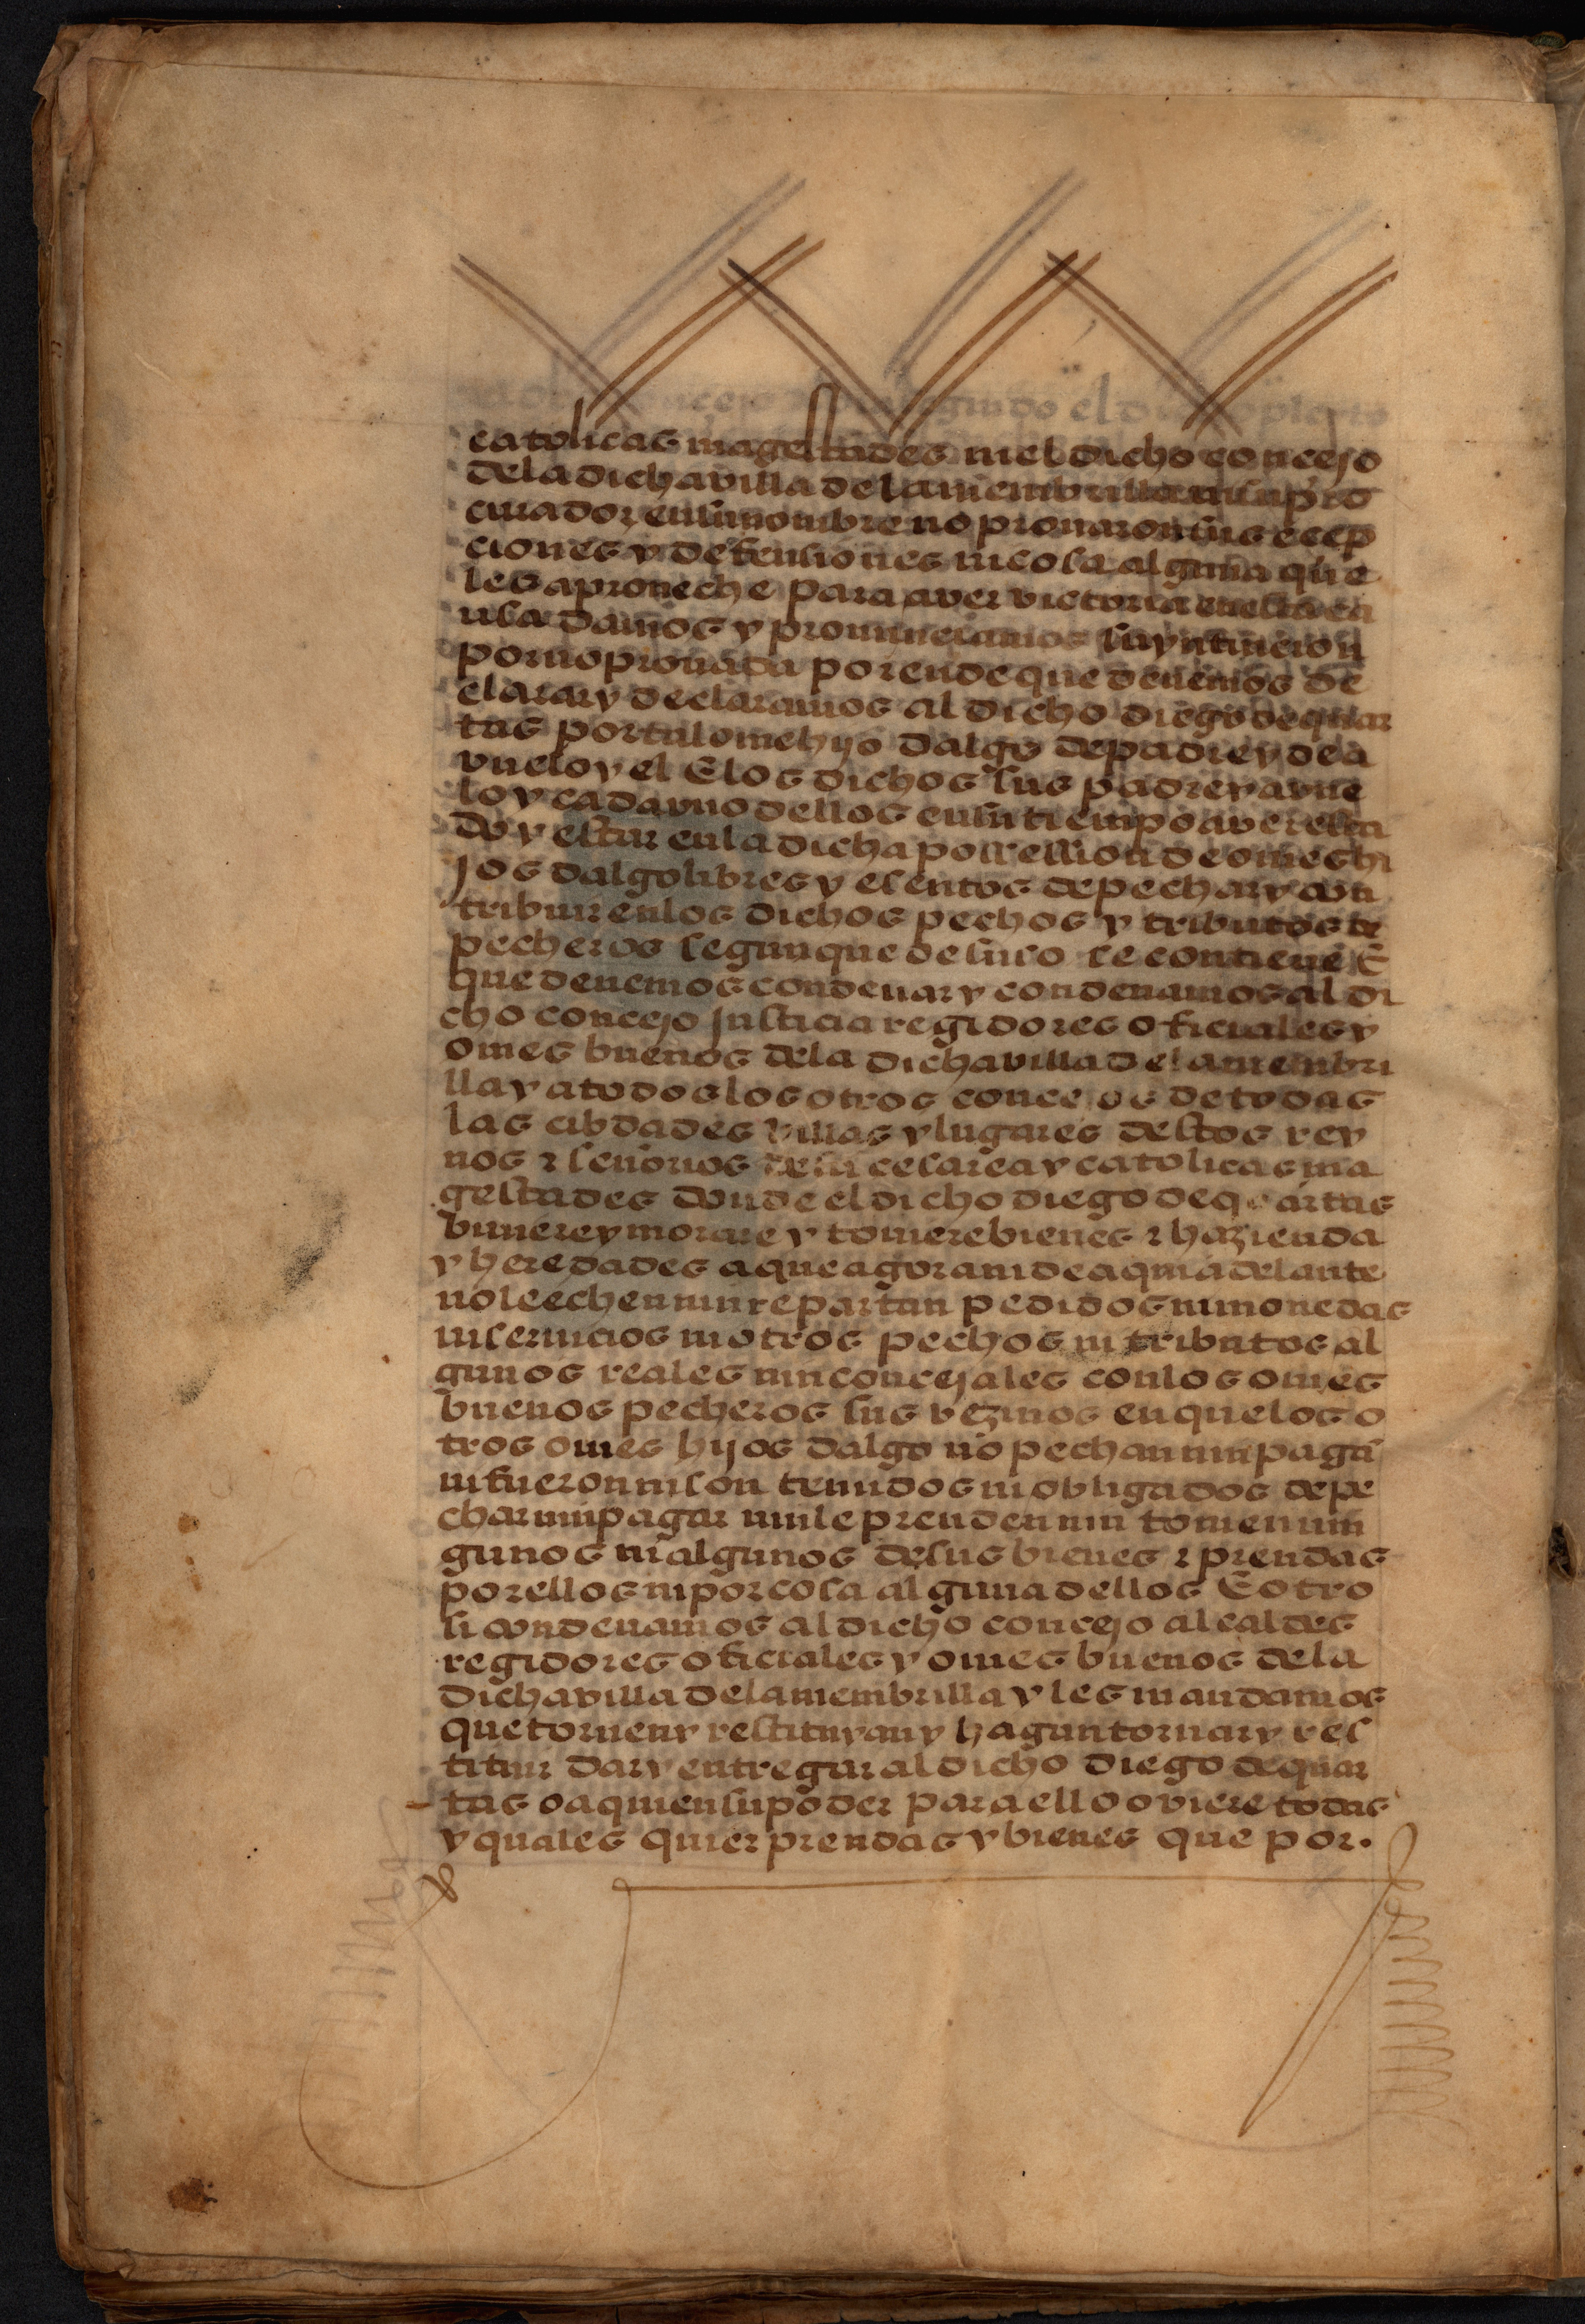 catolicas magestades ni el dicho concejo
dela dicha villa dela membrilla ni su pro
curador en su nombre no provaron sus ecep
ciones y defensiones ni cosa alguna que
les aproveche para aver victoria en esta ca
usa damos y pronunciamos su yntincion
por no provada por ende que devemos de
clarar y declaramos al dicho diego de quar
tas por tal ome hijo dalgo de padre y de a
vuelo y el E los dichos sus padre y avue
lo y cada uno dellos en su tiempo aver esta
do y estar en la dicha possession de omes hi
jos dalgo libres y esentos de pechar y con
tribuir en los dichos pechos y tributos de
pecheros segun que de suso se contiene E
que devemos condenar y condenamos al di
cho concejo justicia regidores oficiales y
omes buenos dela dicha villa dela membri
lla y a todos los otros concejos de todas
las cibdades villas y lugares destos rey
nos & señorios de su cesarea y catolicas ma
gestades donde el dicho diego de quartas
biviere y morare y toviere bienes & hazienda
y heredades a que agora ni de aqui adelante
no le echen nin repartan pedidos ni monedas
ni servicios ni otros pechos ni tributos al
gunos reales nin concejales con los omes
buenos pecheros sus vezinos en que los o
tros omes hijos dalgo no pechan nin pagã
ni fueron ni son tenudos ni obligados de pe
char nin pagar nin le prenden nin tomen nin
gunos ni algunos de sus bienes & prendas
por ellos ni por cosa alguna dellos E otro
si condenamos al dicho concejo alcaldes
regidores oficiales y omes buenos dela
dicha villa dela membrilla y les mandamos
que tornen y restituyan y hagan tornar y res
tituir dar y entregar al dicho diego de quar
tas o a quien su poder para ello oviere todas
y quales quier prendas y bienes que por.